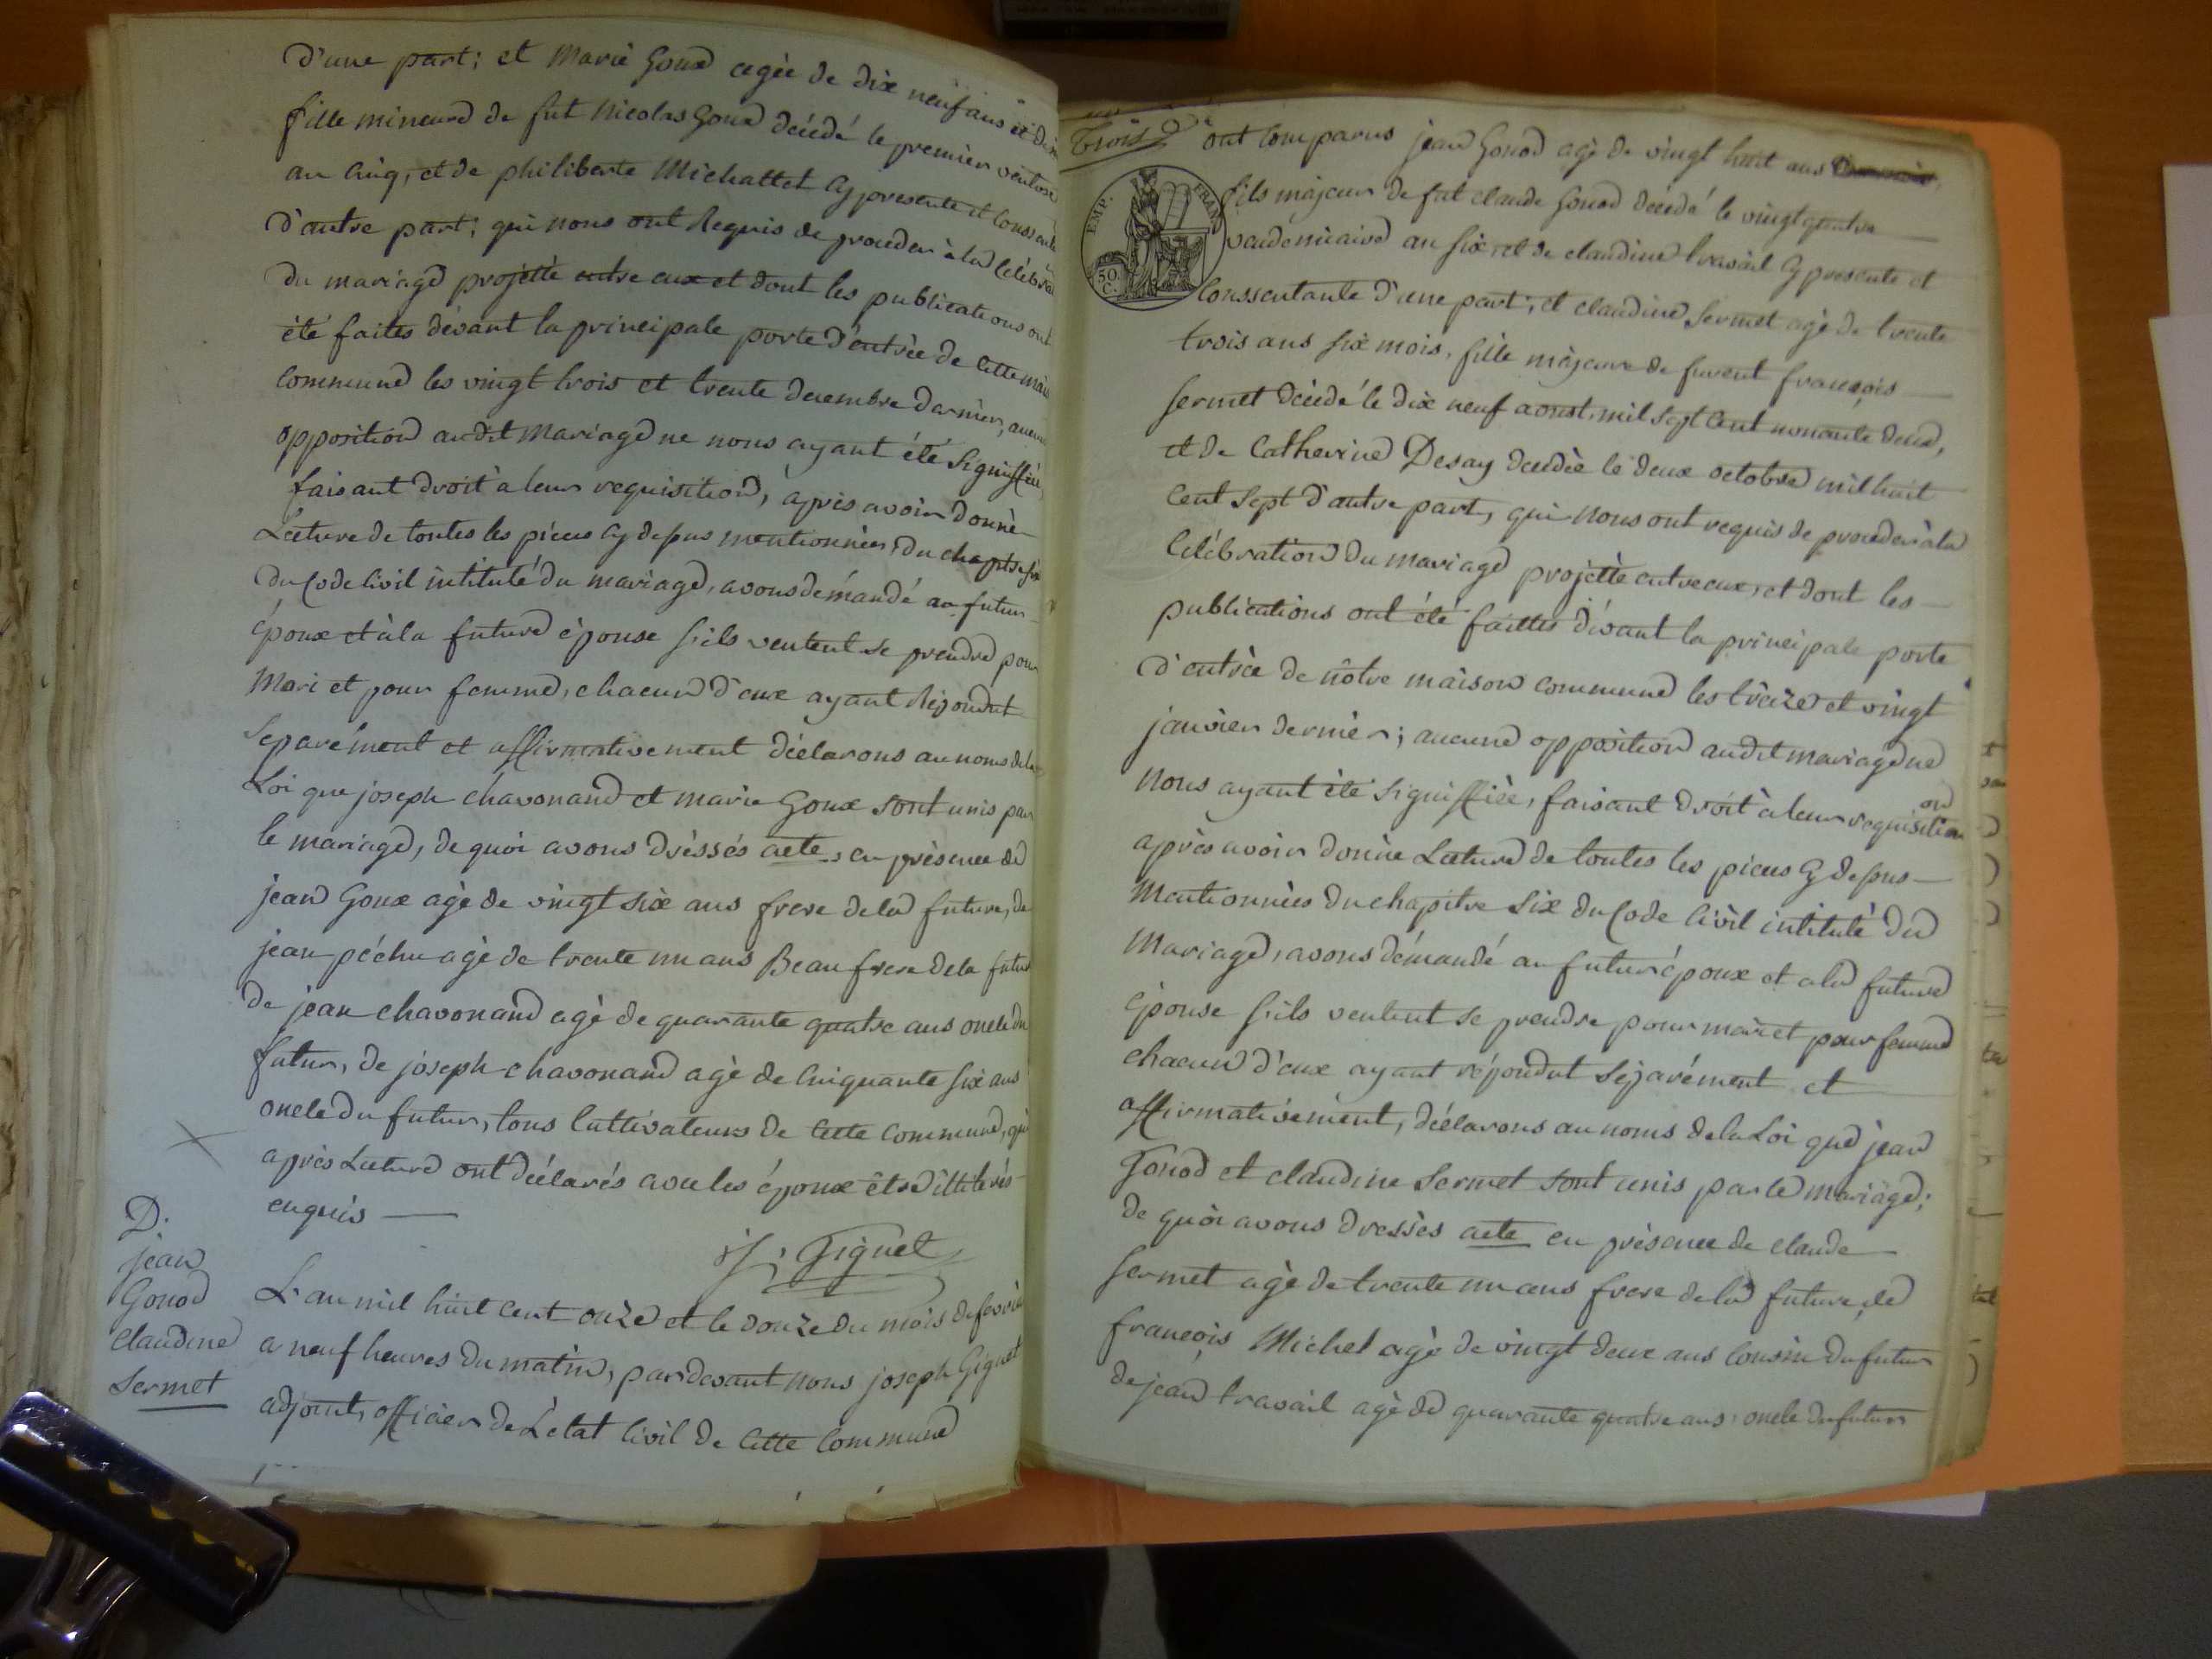 d'une part; et Marie Goux agée de dix neuf ans et
fille mineure de fut Nicolas Goux décédé le premier ventose
an cinq, et de philiberte Michallet cy presente et
d'autre part; qui nous ont Requis de proceder à la
du mariage projettè entre eux et dont les publications ont
été faites dèvant la principale porte d'entrèe de cette
commune les vingt trois et trente decembre dernier,
opposition audit mariage ne nous ayant été signiffièe,
faisant droit à leur requisition, après avoir donné
Lecture de toutes les pieces cy dessus mentionnèes, du
du Code Civil intitulé du mariage, avons démandé au futur
époux et à la future épouse s'ils veulent se prendre pour
Mari et pour femme, chacun d'eux ayant Répondut
separément et affirmativement déclarons au noms de la
Loi que joseph chavonand et marie Goux sont unis par
le mariage, de quoi avons dressés acte, en présence de
jean Goux agè de vingt six ans frere de la future, de
jean péchu agè de trente un ans Beau frere de la
de jean chavonand agè de quarante quatre ans oncle du
futur, de joseph chavonand agè de cinquante six ans
oncle du futur, tous cultivateurs de cette commune, qui
après Lecture ont déclarés avec les époux être illiterés
enquis —
J; Giguet
D.
jean
Gonod
Claudine
Sermet
L'an mil huit cent onze et le douze du mois de
a neuf heures du matin, pardevant nous joseph Giguet
adjoint, officier de L'état Civil de cette commune
trois
EMP. FRAN.
50. C.
ont comparus jean Gonod agè de vingt huit ans
fils majeur de fut claude Gonod décédé le vingt quatre
vendemiaire an six, et de claudine travail cy presente et
Conssentante d'une part; et claudine Sermet agè de trente
trois ans six mois, fille majeure de furent françois
Sermet décédé le dix neuf aoust mil sept cent nonante deux,
et de Catherine Desay décédèe le deux octobre mil huit
cent sept d'autre part, qui nous ont requis de proceder à la
Célébration du mariage projettè entre eux, et dont les
publications ont été faittes dévant la principale porte
d'entrèe de nôtre maison commune les treize et vingt
janvier dernier; aucune opposition audit mariage ne
nous ayant été signiffièe, faisant droit à leur requisition
après avoir donnè Lecture de toutes les pieces cy dessus
Mentionnèes du chapitre six du Code Civil intitulé du
Mariage, avons démandé au futur époux et a la future
épouse s'ils veulent se prendre pour mari et pour femme
chacun d'eux ayant répondut séparément et
affirmativement, déclarons au noms de la Loi que jean
Gonod et claudine Sermet sont unis par le mariage;
de quoi avons dressès acte en présence de claude
Sermet agè de trente un ans frere de la future, de
françois Michel agè de vingt deux ans cousin du futur
de jean travail agè de quarante quatre ans oncle du futur